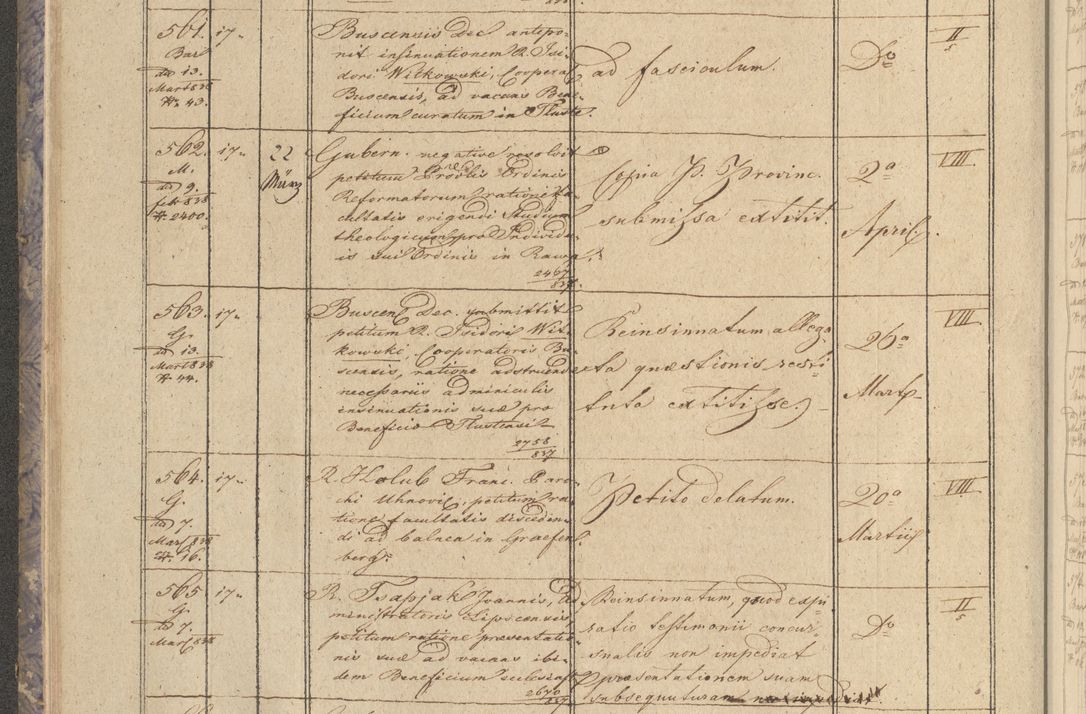 561. 17.
Bus
dd 13.
Mart 838
N. 43.
Buscensis Dec. antepo-
nit insinuationem R. Isi-
dori Witkowski, Cooperat
Buscensis, ad vacuas Bene-
ficium curatum in Tluste.
ad fasciculum.
Do
II
5
562. 17.
M.
dd 9.
feb 838
N. 2400.
22
März
Gubern. negative resolvit
petitum Ordinis
Reformatorum ratione fa-
cultatis erigendi Studium
theologicum pro Individu-
is sui Ordinis in Rawa.
2467
837.
Copia P. Provinc.
submissa extitit.
2a
April.
VIII
563. 17.
G.
dd 13.
Mart 838
N. 44.
Buscen Dec. submittit
petitum R. Isidori Wit-
kowski, Cooperatoris Bu-
scensis, ratione adstruende
necessariis adminiculis
insinuationis suae pro
Beneficio Tlustensi
2758
837
Reinsinuatum allega-
ta quaestionis resti-
tuta extitisse.
26a
Marty
VIII
564. 17.
G.
dd 7.
Mart 838
N. 16.
R. Holub Franc. Paro-
chi Uhnovie, petitum ra-
tione facultatis disceden-
di ad balnea in Graefen-
berg.
Petito delatum.
20a
Martii
VIII
565 17.
G.
dd 7.
Mart 838
R. Tsapjak Joannis, Ad
ministratoris Lipocensis,
petitum ratione praesentatio-
nis suae ad vacuas ibi-
dem Beneficium eclesiast
2670
837
Reinsinuatum, quod expi-
ratio testimonii concur-
sualis non impediat
praesentationem suam
subsequuturam
Do
II
5